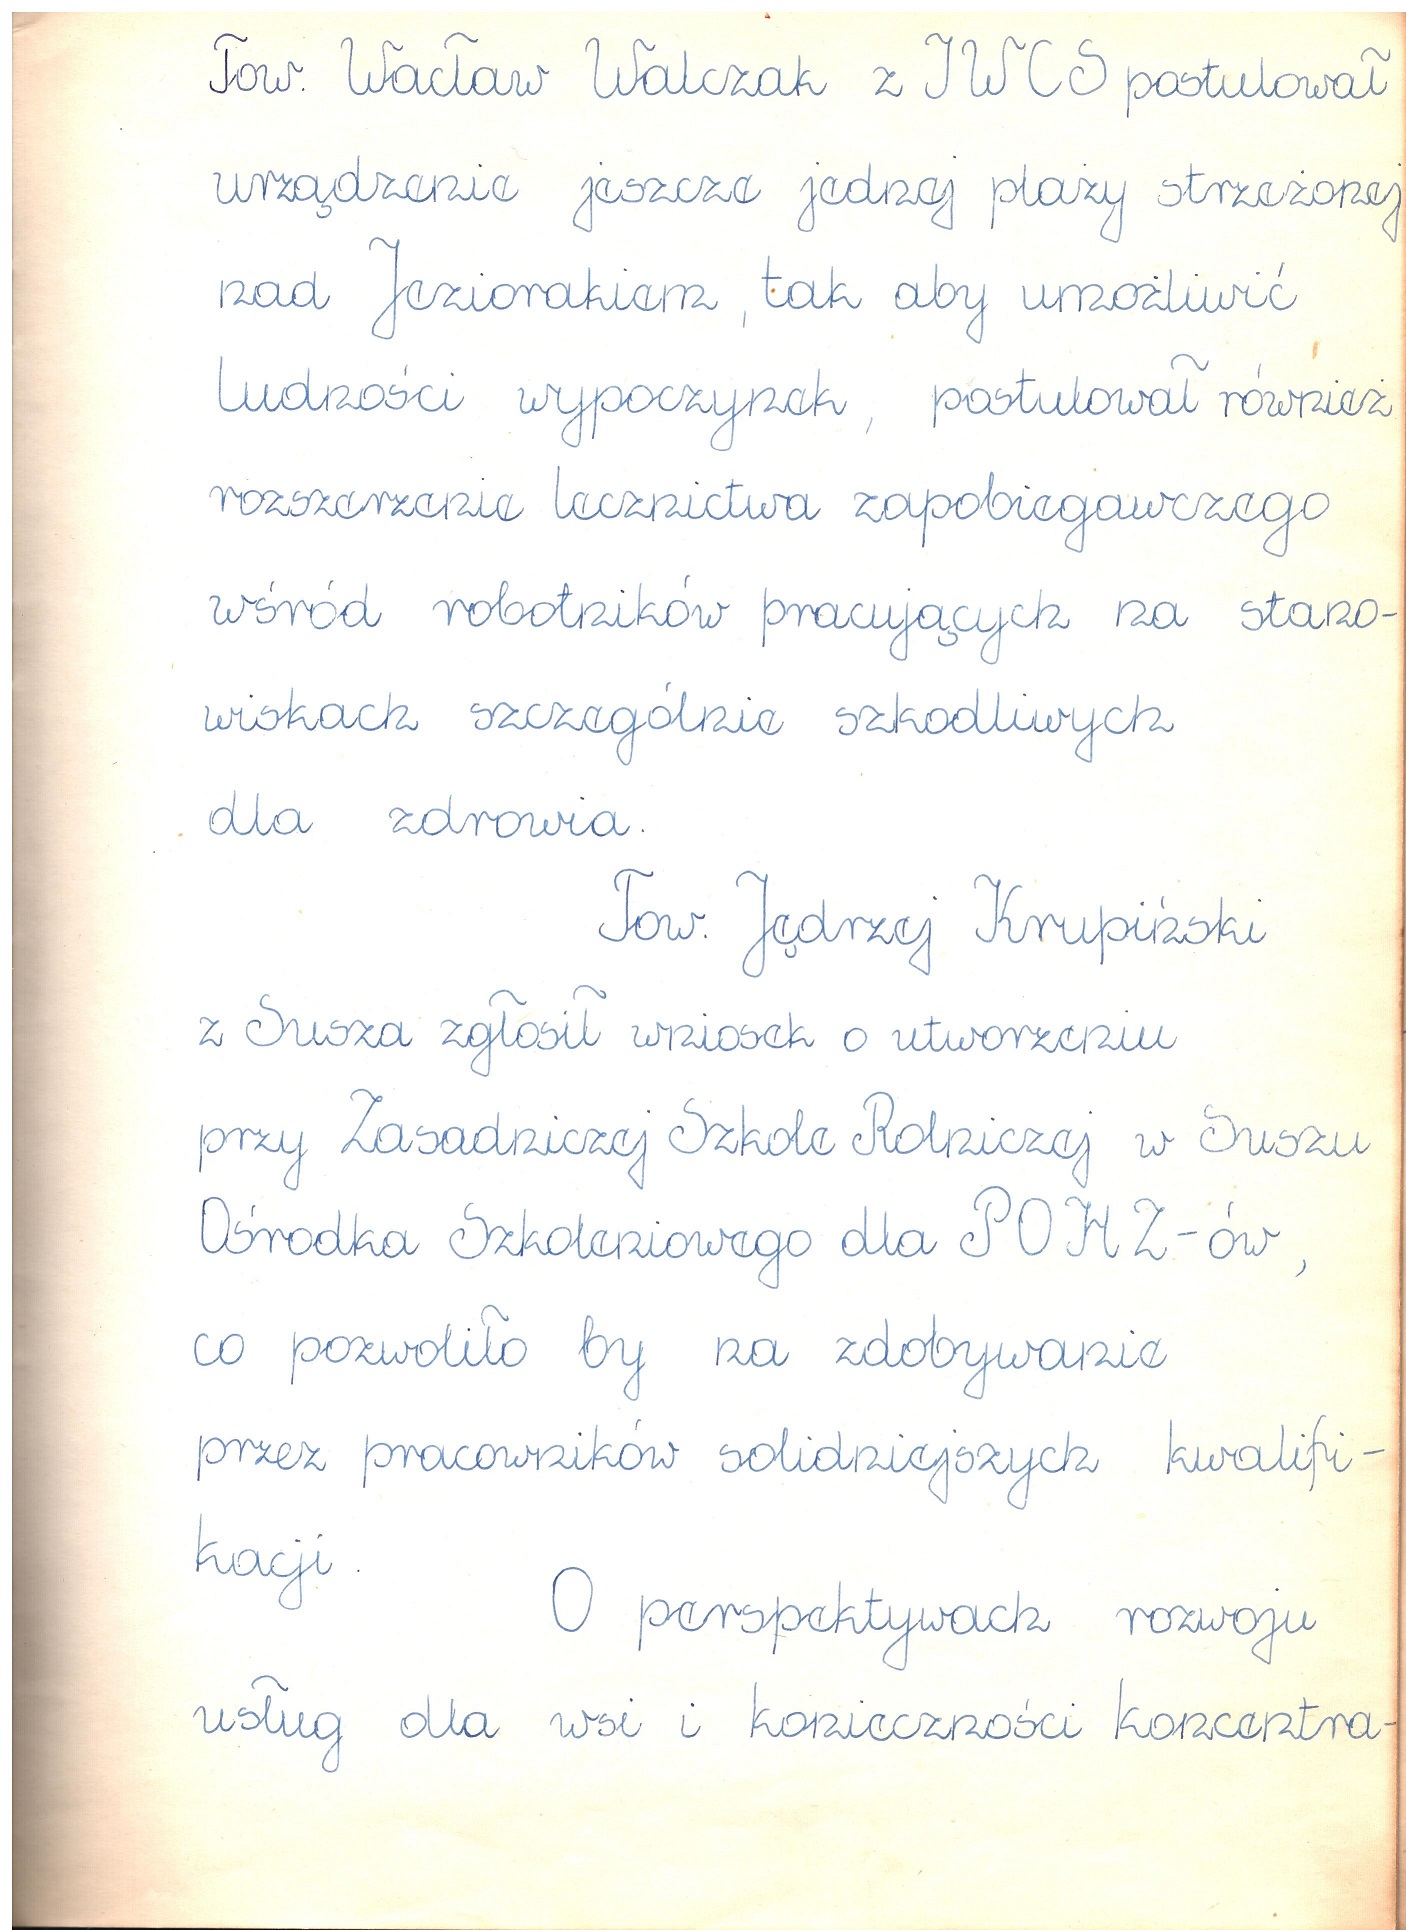 Tow. Wacław Walczak z IWCS postulował
urządzenie jeszcze jednej plaży strzeżonej
nad Jeziorakiem, tak aby umożliwić
ludności wypoczynek, postulował również
rozszerzenie lecznictwa zapobiegawczego
wśród robotników pracujących na stano-
wiskach szczególnie szkodliwych
dla zdrowia.
Tow. Jędrzej Krupiński
z Susza zgłosił wniosek o utworzeniu
przy Zasadniczej Szkole Rolniczej w Suszu
Ośrodka Szkoleniowego dla POHZ-ów,
co pozwoliło by na zdobywanie
przez pracowników solidniejszych kwalifi-
kacji.
O perspektywach rozwoju
usług dla wsi i konieczności koncentra-